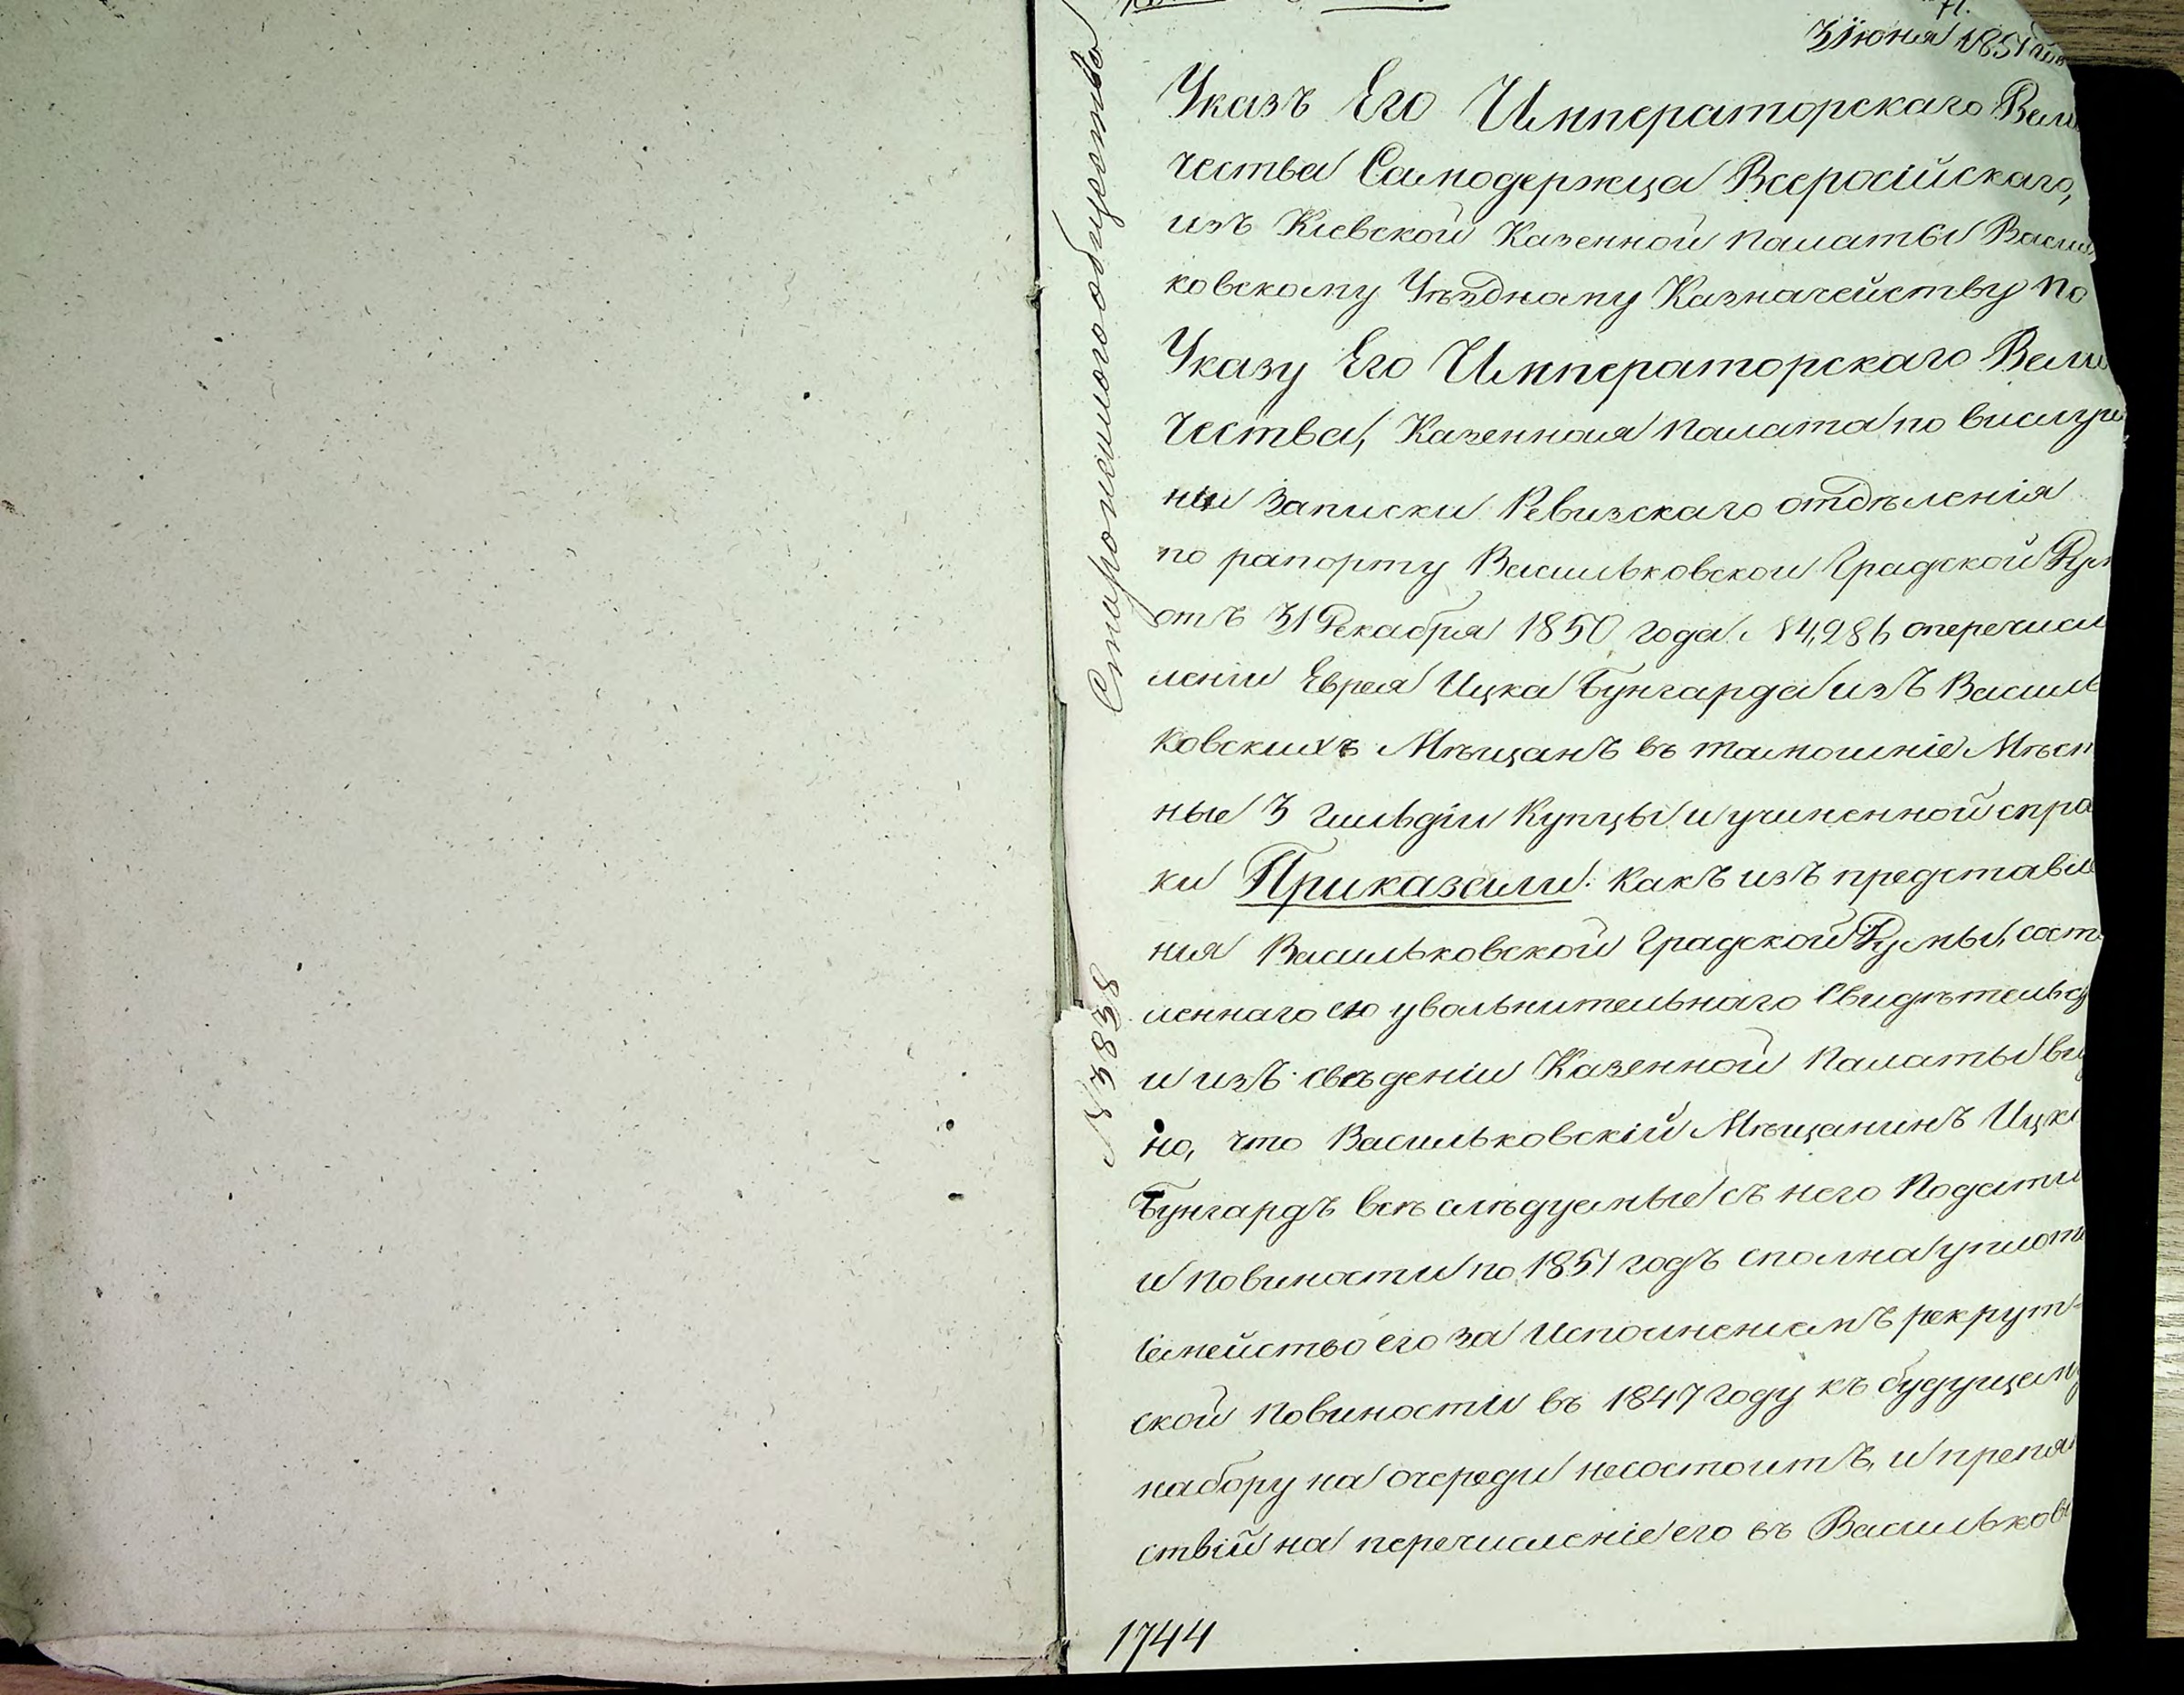 3 Іюня 1851 го
Указъ Его Императорскаго Вели
чества Самодержца Всеросійскаго,
изъ Кіевской Казенной палаты Василь
ковскому Уѣздному Казначейству По
Указу Его Императорскаго Вели
чества, Казенная палата по вислуша
ніи Записки Ревизскаго отдѣленія
по рапорту Васильковской Градской Дум
отъ 31 Декабря 1850 года № 4,286 оперечис
леніи Еврея Ицка Бунгарда изъ Василь
ковскихъ Мѣщанъ въ тамошніе Мѣст
ные 3 гильдіи Купцы и учиненной спра
ки Приказали: какъ изъ представле
ния Васильковской Градской Думы, сост
леннаго ею увольнительнаго Свидѣтельс
и изъ свѣденіи Казенной Палаты ви
но, что Васильковскій Мѣщанинъ Ицка
Бунгардъ всѣ слѣдуемые съ него Подати
и повиности по 1851 годъ сполна уплот
Семейство его за Исполненіемъ рекрут-
ской повиности въ 1847 году къ будущему
набору на очереди несостоитъ, и препят
ствій на перечисленіе его въ Васильков
1744
Старопонскому обществу
№ 3838